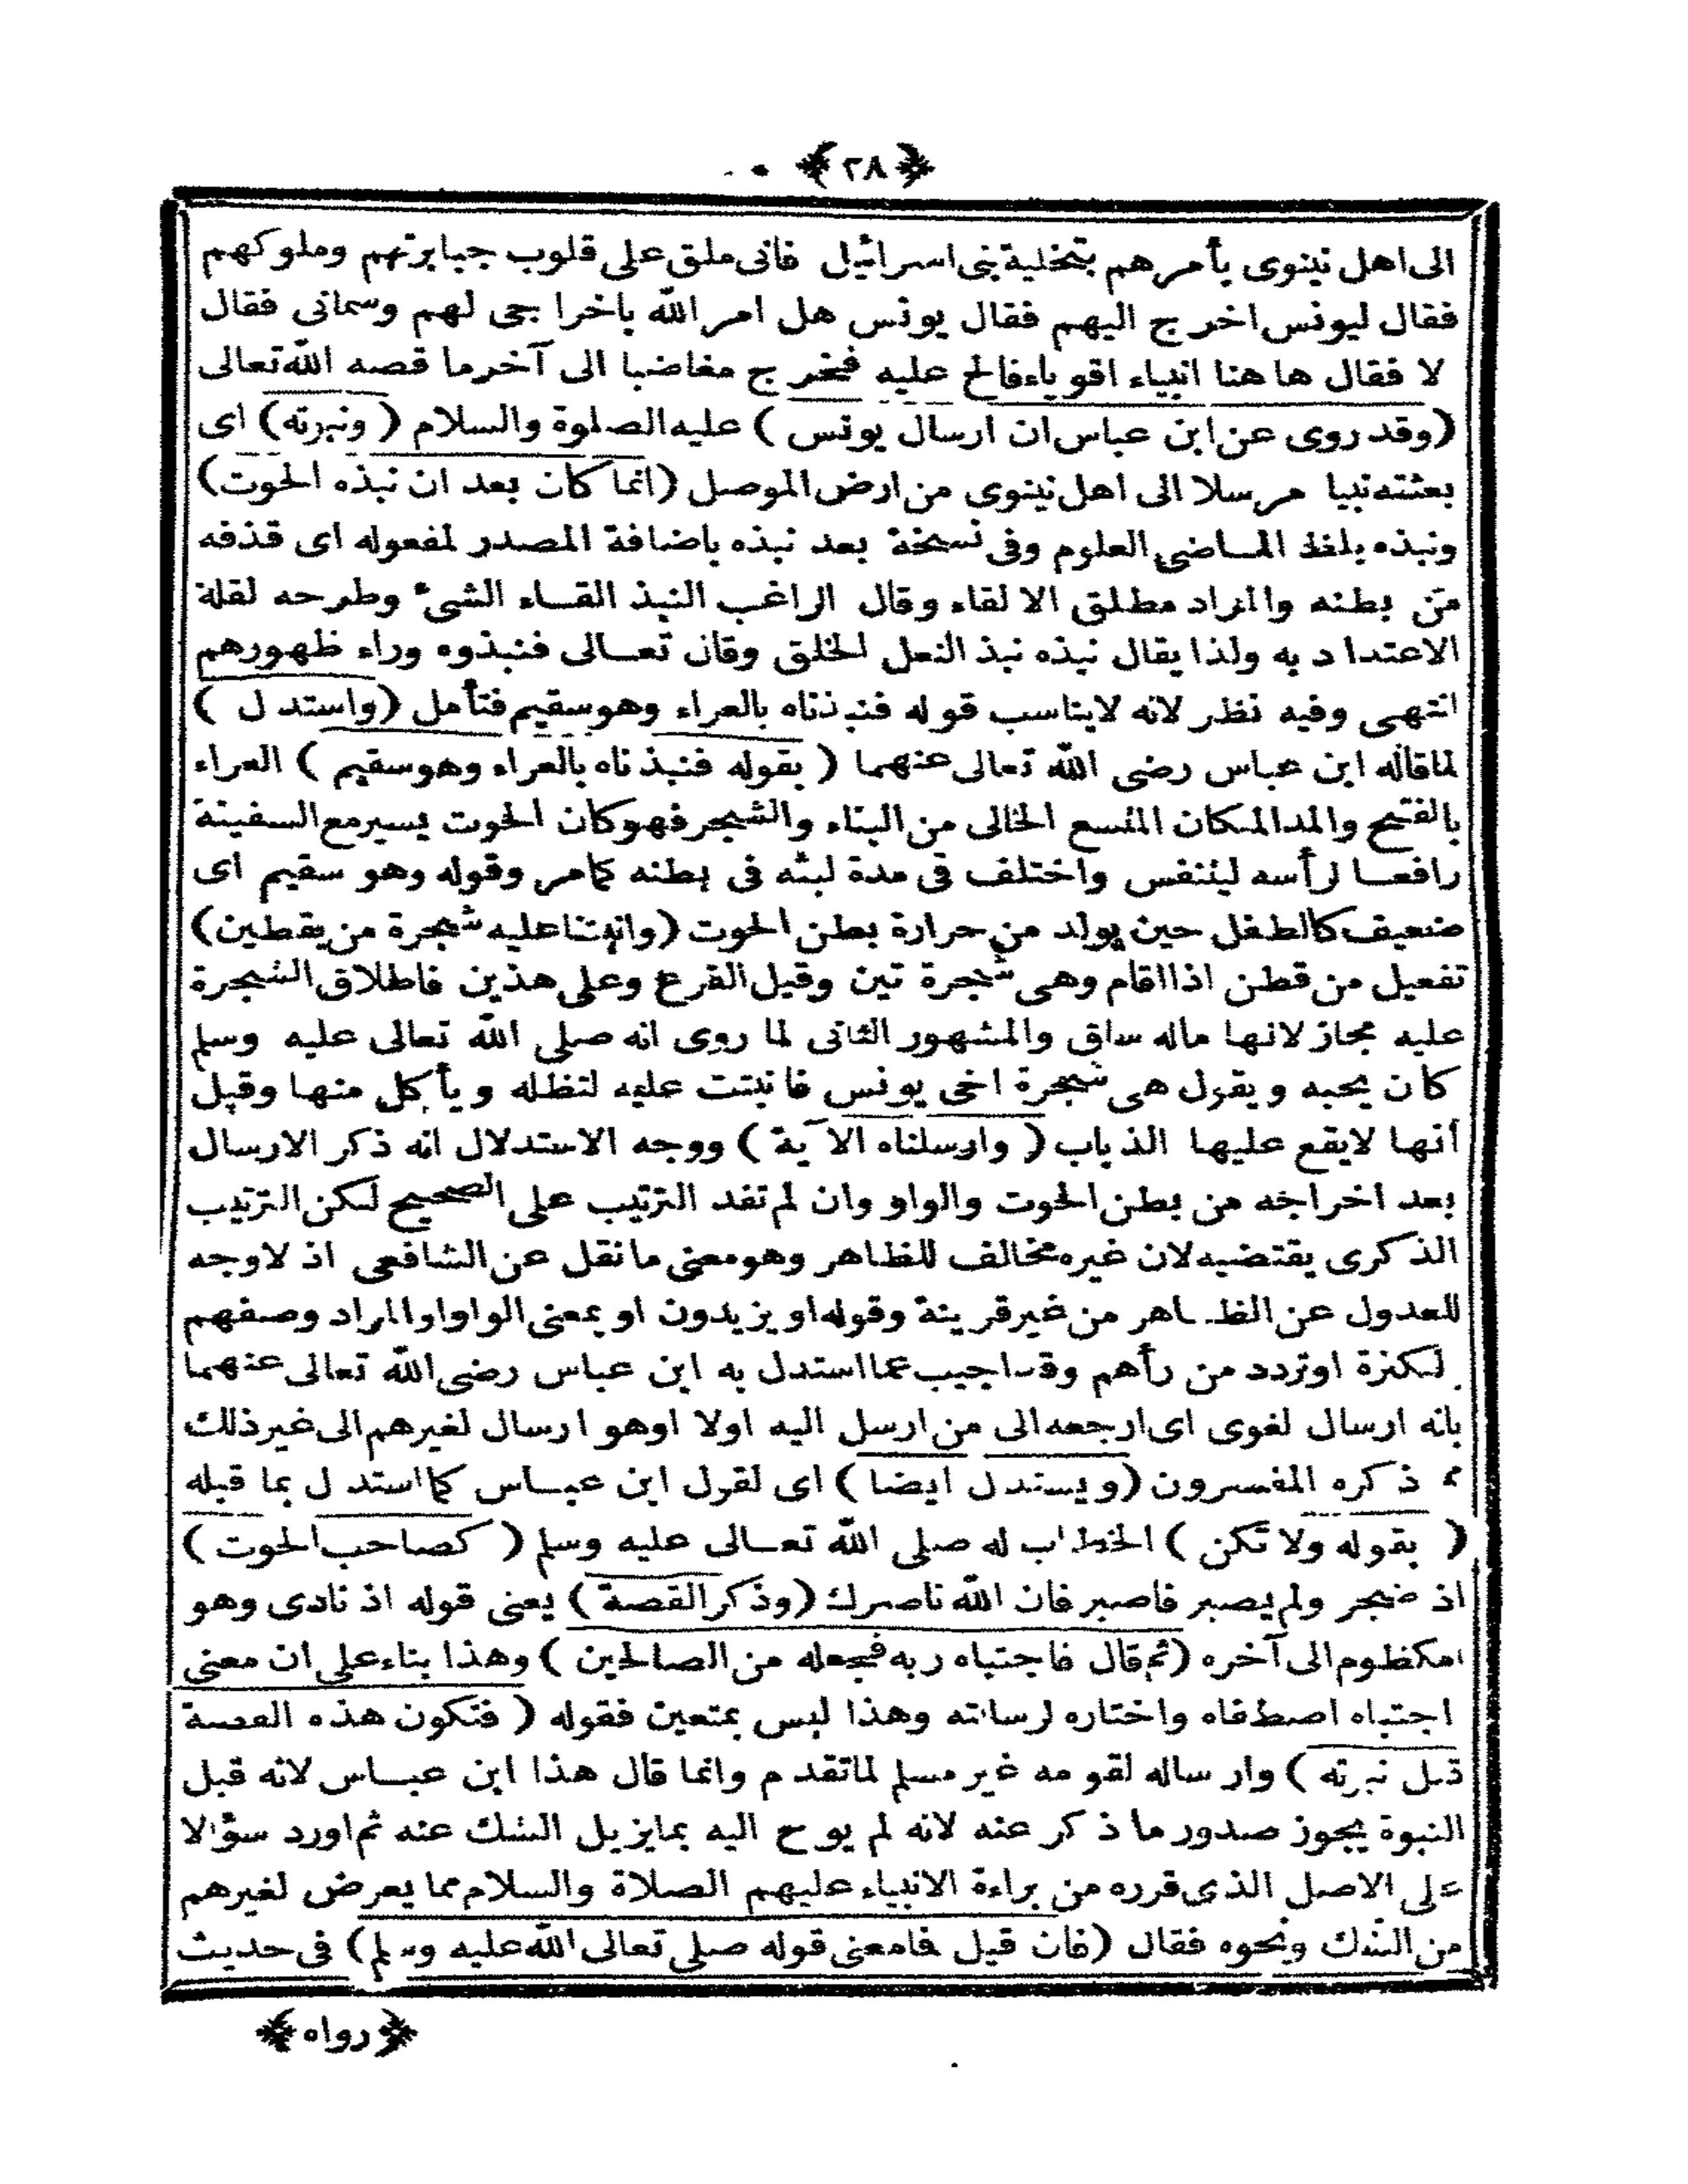 ﴿٢٨﴾
الى اهل نينوى يأمرهم بتخلية بنى اسرائيل فانى ملق على قلوب جبابرتهم وملوكهم
فقال ليونس اخرج اليهم فقال يونس هل امر الله باخراجى لهم وسمانى فقال
لا فقال ها هنا انبياء اقوياء فالح عليه فخرج مغاضبا الى آخر ما قصه الله تعالى
(وقد روى عن ابن عباس ان ارسال يونس) عليه الصلوة والسلام (ونبوته) اى
بعثته نبيا مرسلا الى اهل نينوى من ارض الموصل (انما كان بعد ان نبذه الحوت)
ونبذه بلفظ المـاضى العلوم وفى نسخة بعد نبذه باضافة المصدر لمفعوله اى قذفه
من بطنه والمراد مطلق الالقاء وقال الراغب النبذ القـاء الشىء وطرحه لقلة
الاعتداد به ولذا يقال نبذه نبذ النعل الخلق وقال تعـالى فنبذوه وراء ظهورهم
انتهى وفيه نظر لانه لايناسب قوله فنبذناه بالعراء وهو سقيم فتأمل (واستدل)
لماقاله ابن عباس رضى الله تعالى عنهما (بقوله فنبذناه بالعراء وهو سقيم) العراء
بالفتح والمد المكان المتسع الخالى من البناء والشجر فهو كان الحوت يسير مع السفينة
رافعـا رأسه ليتنفس واختلف فى مدة لبثه فى بطنه كامر وقوله وهو سقيم اى
ضعيف كالطفل حين يولد من حرارة بطن الحوت (وانبتنا عليه شجرة من يقطين)
تفعيل من قطن اذا اقام وهى شجرة تين وقيل القرع وعلى هذين فاطلاق الشجرة
عليه مجاز لانها ماله ساق والمشهور الثانى لما روى انه صلى الله تعالى عليه وسلم
كان يحبه ويقول هى شجرة اخى يونس فانبتت عليه لتظله ويأكل منها وقيل
أنها لايقع عليها الذباب (وارسلناه الآية) ووجه الاستدلال انه ذكر الارسال
بعد اخراجه من بطن الحوت والواو وان لم تفد الترتيب على الصحيح لكن الترتيب
الذكرى يقتضيه لان غيره مخالف للظاهر وهو معنى مانقل عن الشافعى اذ لاوجه
للعدول عن الظـاهر من غير قرينة وقوله او يزيدون او بمعنى الواو او المراد وصفهم
لكثرة او تردد من رأهم وقد اجيب عما استدل به ابن عباس رضى الله تعالى عنهما
بانه ارسال لغوى اى ارجعه الى من ارسل اليه اولا او هو ارسال لغيرهم الى غير ذلك
مما ذكره المفسرون (ويستدل ايضا) اى لقول ابن عبـاس كما استدل بما قبله
(بقوله ولا تكن) الخطاب له صلى الله تعـالى عليه وسلم (كصاحب الحوت)
اذ ضجر ولم يصبر فاصبر فان الله ناصرك (وذكر القصة) يعنى قوله اذ نادى وهو
مكظوم الى آخره (ثم قال فاجتباه ربه فجعله من الصالحين) وهذا بناء على ان معنى
اجتباه اصطفاه واختاره لرسالته وهذا ليس بمتعين فقوله (فتكون هذه القصة
قبل نبوته) وارساله لقومه غير مسلم لماتقدم وانما قال هذا ابن عبـاس لانه قبل
النبوة يجوز صدور ما ذكر عنه لانه لم يوح اليه بمايزيل الشك عنه ثم اورد سؤالا
على الاصل الذى قرره من براءة الانبياء عليهم الصلاة والسلام مما يعرض لغيرهم
من الشك ونحوه فقال (فان قيل فامعنى قوله صلى تعالى الله عليه وسلم) فى حديث
﴿رواه﴾